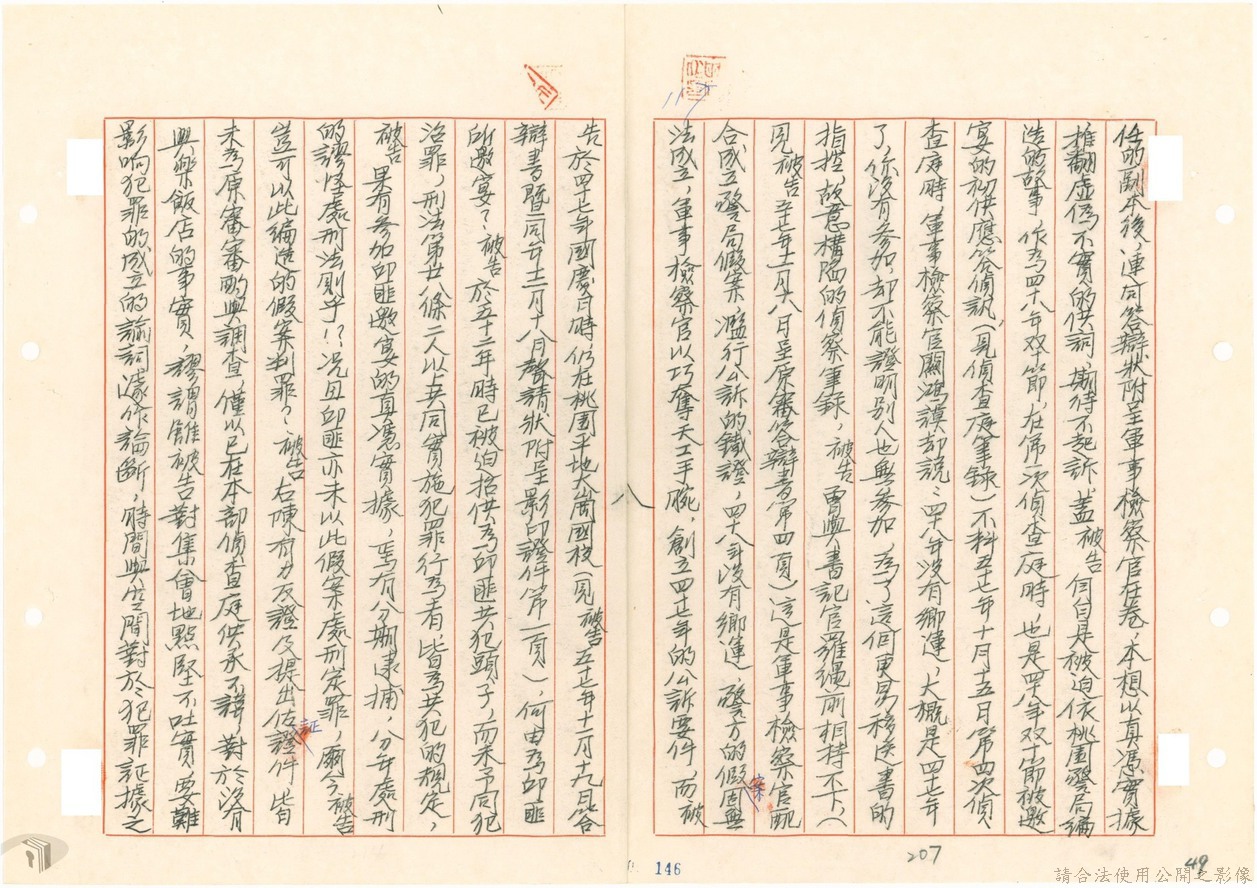 任的副本後，連同答辯狀附呈軍事檢察官在卷，本想以真憑實據
推翻虛偽不實的供詞，期待不起訴。蓋被告自白是被迫依桃園警局編
造的故事，作為四十八年双十節，在第一次偵查庭時，也是四十八年双十節被邀
宴的初供應答偵訊（見偵查庭筆錄）不料五十七年十月十五日第四次偵
查庭時，軍事檢察官關鴻謨却說：四十八年沒有鄉運，大概是四十七年
了，你沒有參加，却不能證明別人也無參加，為了這個更易移送書的
指控，故意構陷的偵察筆錄，被告曾與書記官羅繩前相持不下，（
見被告五十七年十二月十八日呈原審答辯書第四頁）這是軍事檢察官配
合成立警局假案，濫行公訴的鐵證，四十八年沒有鄉運，警方的假案固無
法成立，軍事檢察官以巧奪天工手腕，創立四十七年的公訴要件，而被
告於四十七年國慶日時仍在桃園平地大崗國校（見被告五十七年十二月十九日答
辯書暨同年十二月十八日聲請狀附呈影印證件第一頁），何由為邱匪
所邀宴？被告於五十二年時已被迫招供為邱匪共犯頭子，而未予同犯
治罪，刑法第廿八條二人以上共同實施犯罪行為者，皆為共犯的規定，
被告果有參加邱匪邀宴的真憑實據，焉有分期逮捕，分年處刑
的謬怪處刑法則乎！？況且邱匪亦未以此假案處刑定罪，爾今被告
豈可以此編造的假案判罪？被告右陳有力反證及提出佐証件，皆
未為原審審酌與調查，僅以已在本部偵查庭供承不諱，對於沒有
興樂飯店的事實，謬謂雖被告對集會地點堅不吐實，要難
影响犯罪的成立的諭詞遽作論斷，時間與空間對於犯罪証據之
八
146
207
49
請合法使用公開之影像